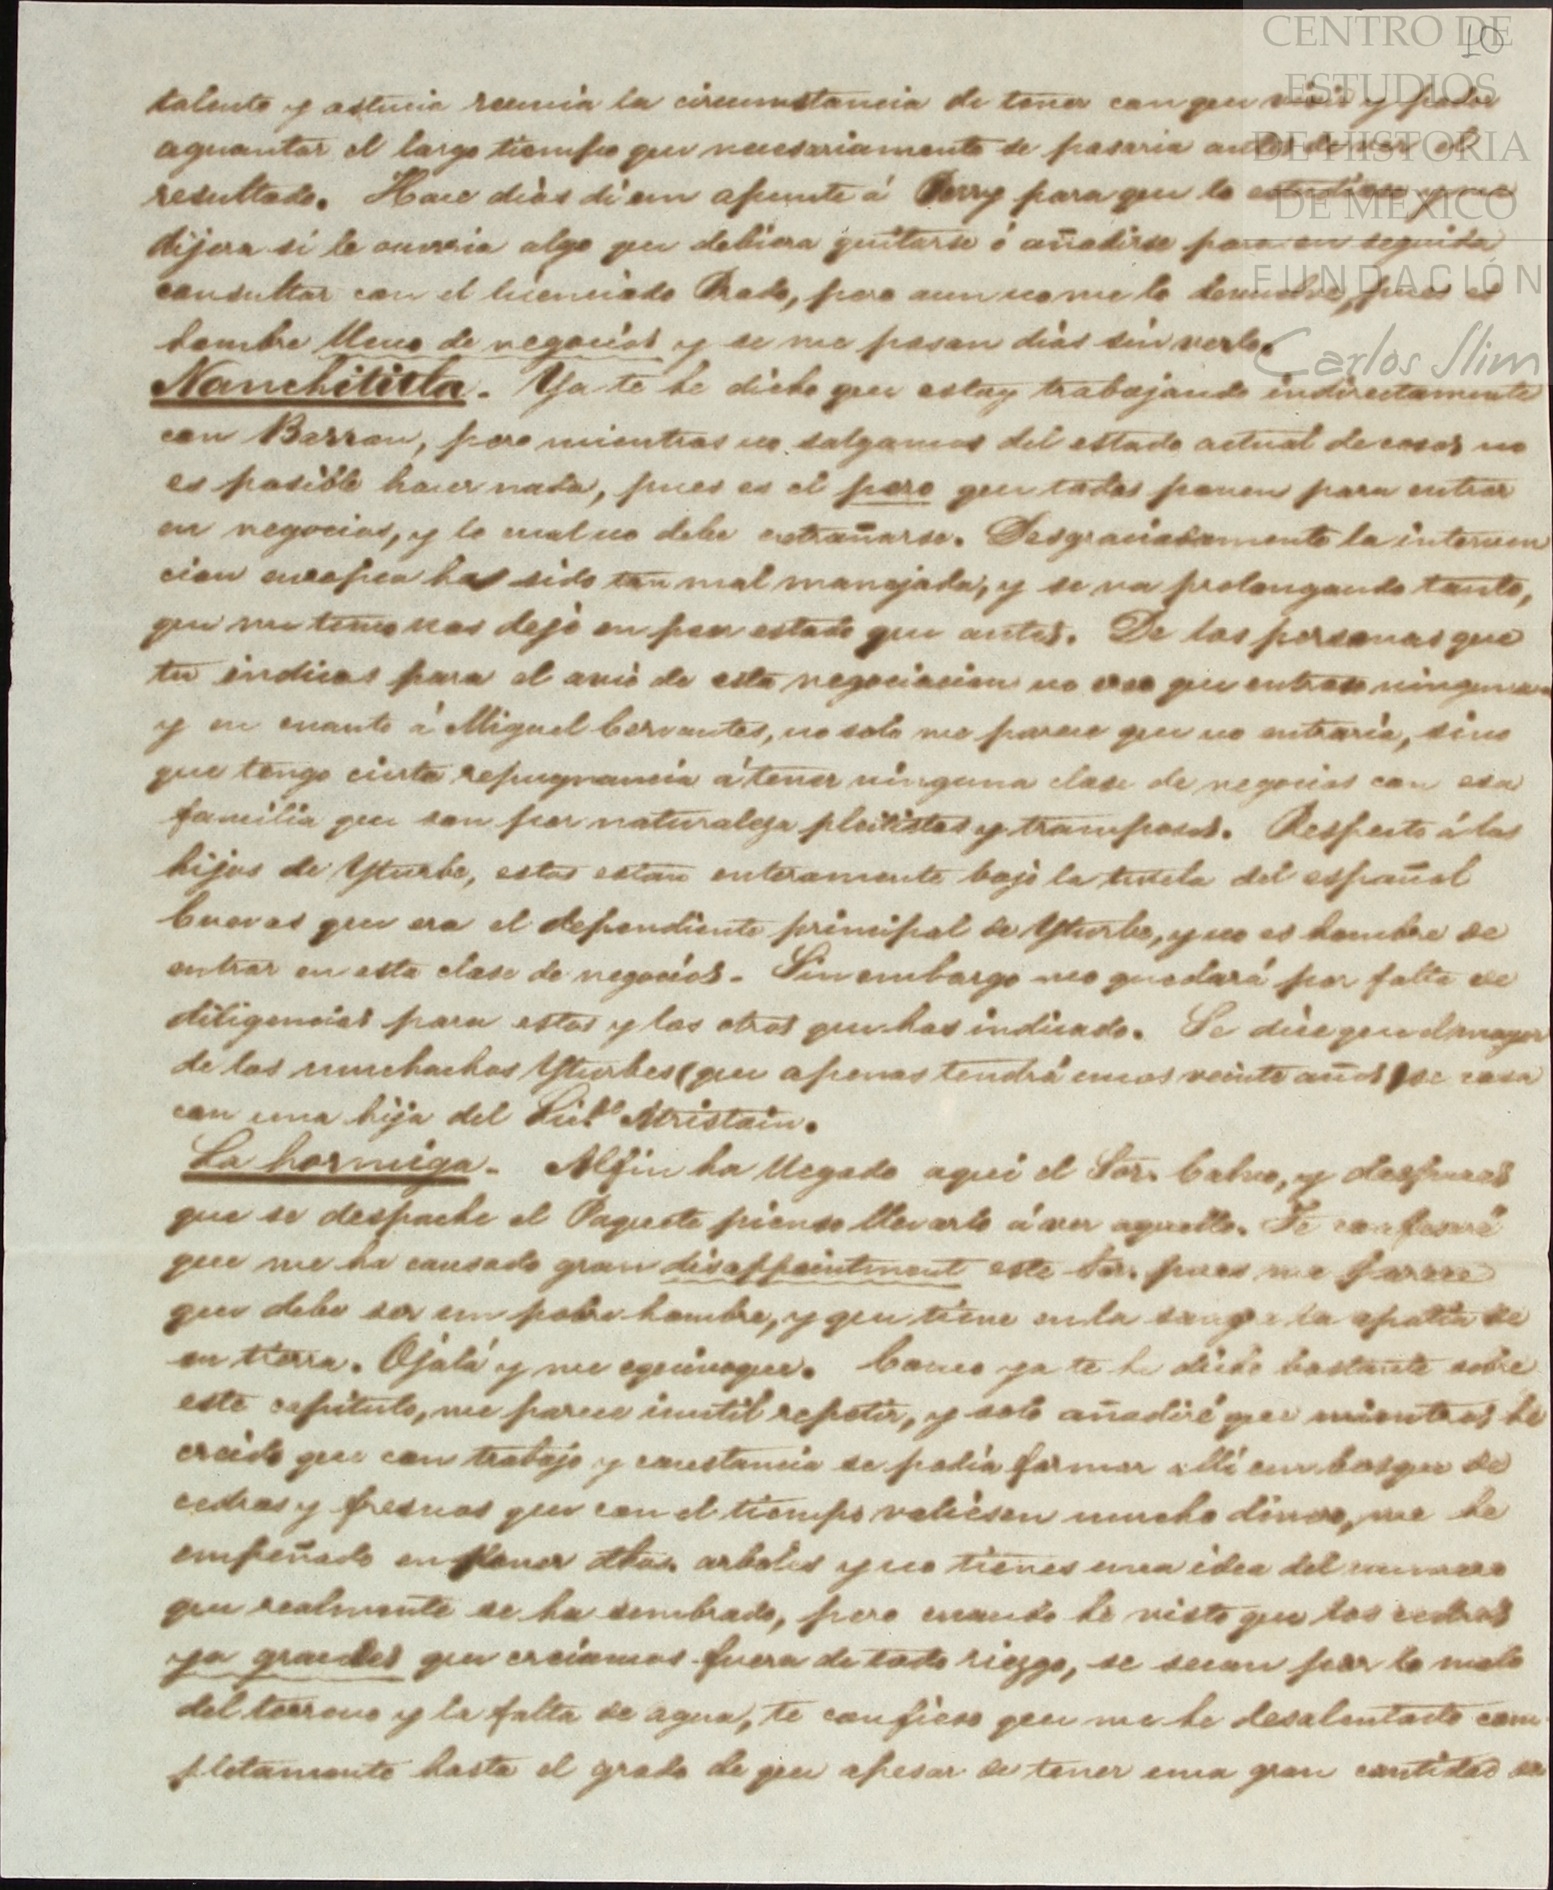 CENTRO DE
ESTUDIOS
DE HISTORIA
DE MÉXICO
FUNDACIÓN
Carlos Slim
10
talento y astucia reunia la circumstancia de tener con que vivir y poder
aguantar el largo tiempo que necesariamente se pasaria antes de ver el
resultado. Hace dias di un apunte á Perry para que lo estudiase y me
dijera si le ocurria algo que debiera quitarse ó añadirse para en seguida
consultar con el licenciado Prado, pero aun no me lo devuelve, pues es
hombre lleno de negocios y se me pasan dias sin verlo.
Nanchititla. Ya te he dicho que estoy trabajando indirectamente
con Barron, pero mientras no salgamos del estado actual de cosas no
es posible hacer nada, pues es el pero que todos ponen para entrar
en negocios, y lo cual no debe extrañarse. Desgraciadamente la interven
cion europea ha sido tan mal manejada, y se va prolongando tanto,
que me temo nos deje en peor estado que antes. De las personas que
tu indicas para el avio de esta negociacion no creo que entrase ninguna
y en cuanto á Miguel Cervantes, no solo me parece que no entraria, sino
que tengo cierta repugnancia á tener ninguna clase de negocios con esa
familia que son por naturaleza pleitistas y tramposos. Respecto á los
hijos de Yturbe, estos estan enteramente bajo la tutela del español
Cuevas que era el dependiente principal de Yturbe, y no es hombre de
entrar en esta clase de negocios. Sin embargo no quedará por falta de
diligencias para estos y los otros que has indicado. Se dice que el mayor
de los muchachos Yturbes (que apenas tendrá unos veinte años) se casa
con una hija del Lic.do Atristain.
La hormiga. Al fin ha llegado aqui el Sor. Calvo, y despues
que se despache el Paquete pienso llevarlo á ver aquello. Te confesaré
que me ha causado gran disappointment este Sor. pues me parece
que debe ser un pobre hombre, y que tiene en la sangre la apatia de
su tierra. Ojalá y me equivoque. Como ya te he dicho bastante sobre
este capitulo, me parece inutil repetir, y solo añadiré que mientras he
creido que con trabajo y constancia se podia formar alli un bosque de
cedros y fresnos que con el tiempo valiesen mucho dinero, me he
empeñado en poner dhos. arboles y no tienes una idea del numero
que realmente se ha sembrado, pero cuando he visto que los cedros
ya grandes que creiamos fuera de todo riezgo, se secan por lo malo
del terreno y la falta de agua, te confieso que me he desalentado com
pletamente hasta el grado de que apesar de tener una gran cantidad de